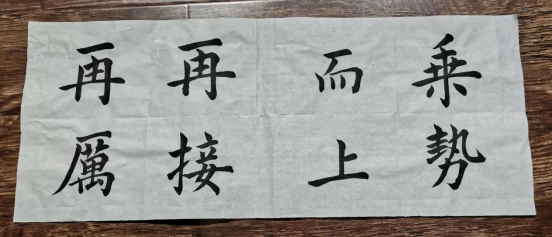 乘勢
而上
再接
再厲